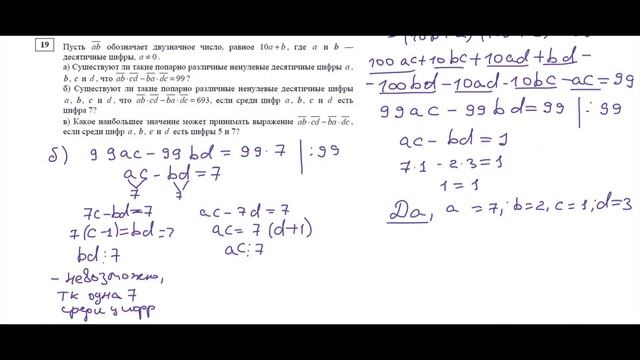 19
Пусть ab обозначает двузначное число, равное 10a + b, где a и b —
десятичные цифры, a ≠ 0.
а) Существуют ли такие попарно различные ненулевые десятичные цифры a,
b, c и d, что ab · cd − ba · dc = 99?
б) Существуют ли такие попарно различные ненулевые десятичные цифры
a, b, c и d, что ab · cd − ba · dc = 693, если среди цифр a, b, c и d есть
цифра 7?
в) Какое наибольшее значение может принимать выражение ab · cd − ba · dc,
если среди цифр a, b, c и d есть цифры 5 и 7?
б) 99ac − 99bd = 99·7 | :99
ac − bd = 7
7 7
7c − bd = 7
7(c−1) = bd =>
bd ⋮ 7
– невозможно,
тк одна 7
среди цифр
ac − 7d = 7
ac = 7(d+1)
ac ⋮ 7
100ac + 10bc + 10ad + bd −
− 100bd − 10ad − 10bc − ac = 99
99ac − 99bd = 99 | :99
ac − bd = 1
7·1 − 2·3 = 1
1 = 1
Да, a = 7, b = 2, c = 1, d = 3